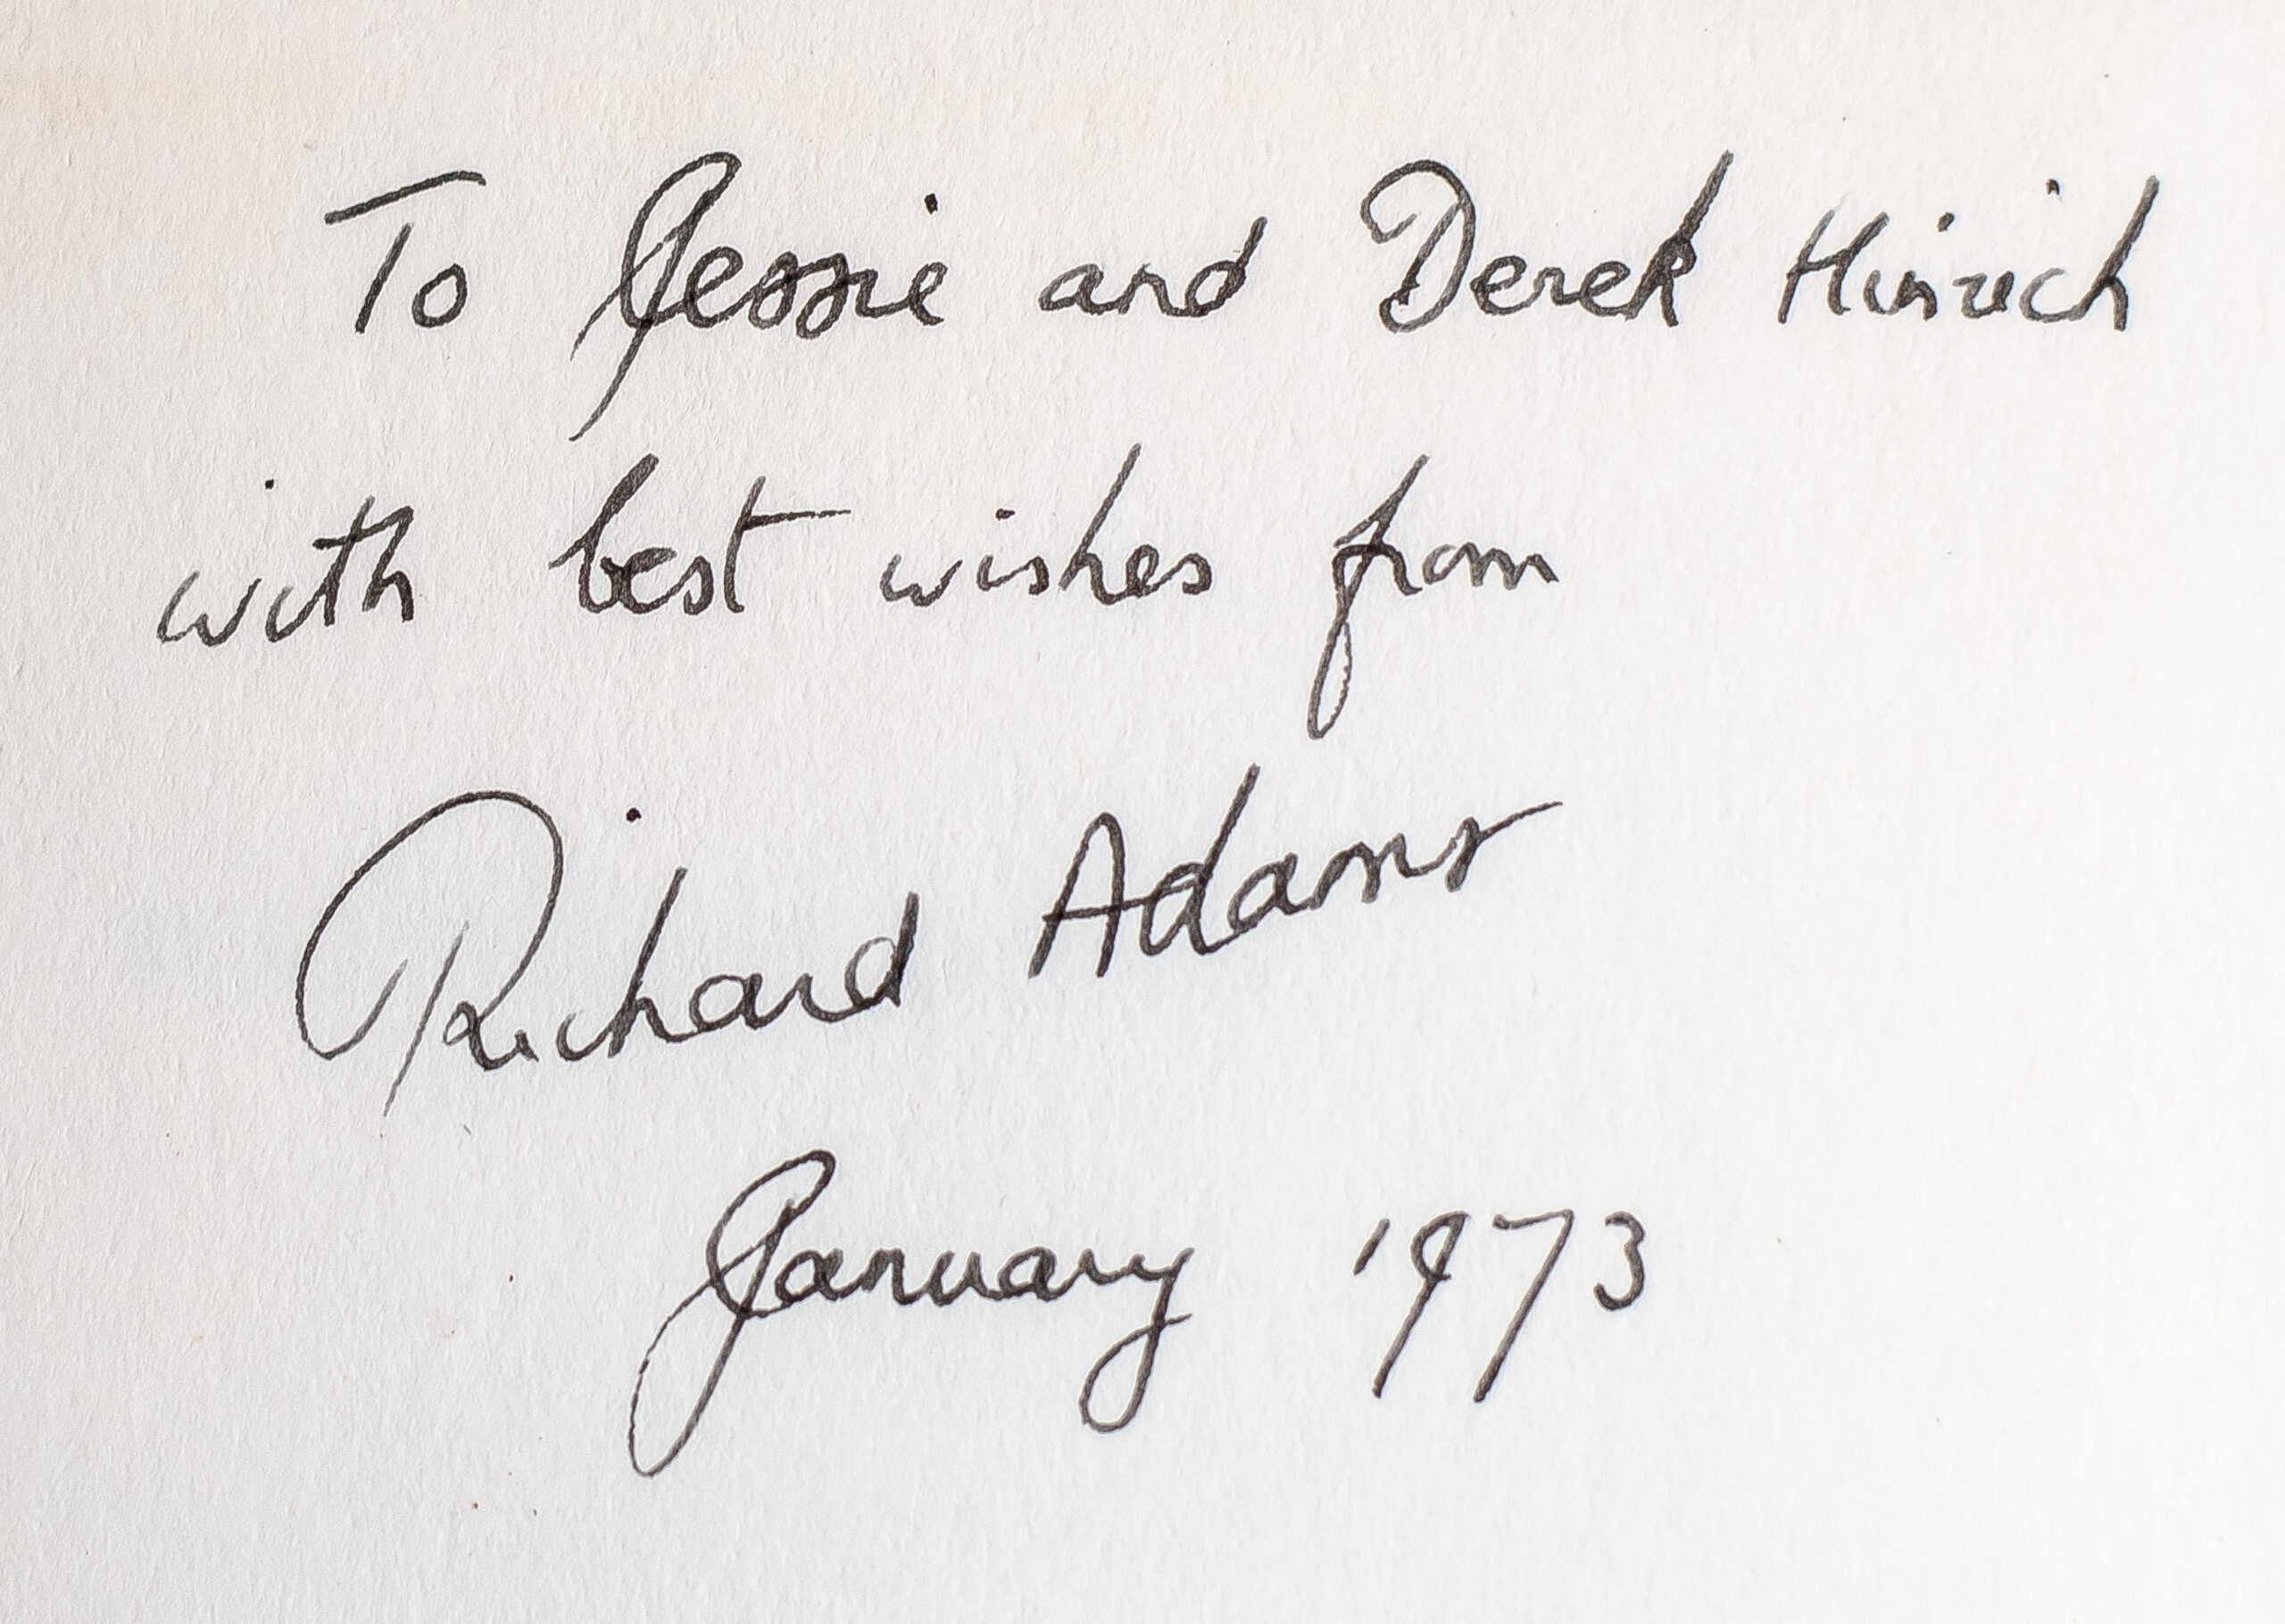 To Jessie and Derek Hinrich
with best wishes from
Richard Adams
January 1973